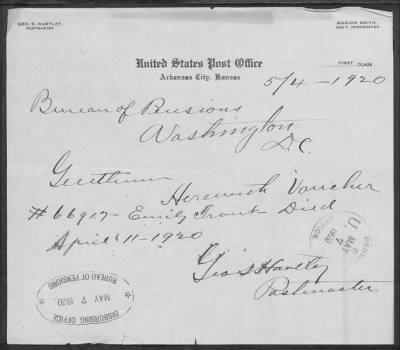 GEO. S. HARTLEY,
POSTMASTER
MARION SMITH,
ASS'T. POSTMASTER
United States Post Office
FIRST CLASS
Arkansas City, Kansas
5/4-1920
Bureau of Pensions
Washington
D.C.
Gentlemen
Herewith Voucher
#66917- Emily Trout Died
April 11-1920
Geo S Hartley
Postmaster
MAY
7
1920
BUREAU OF PENSIONS
MAY 7 1920
DISBURSING OFFICE